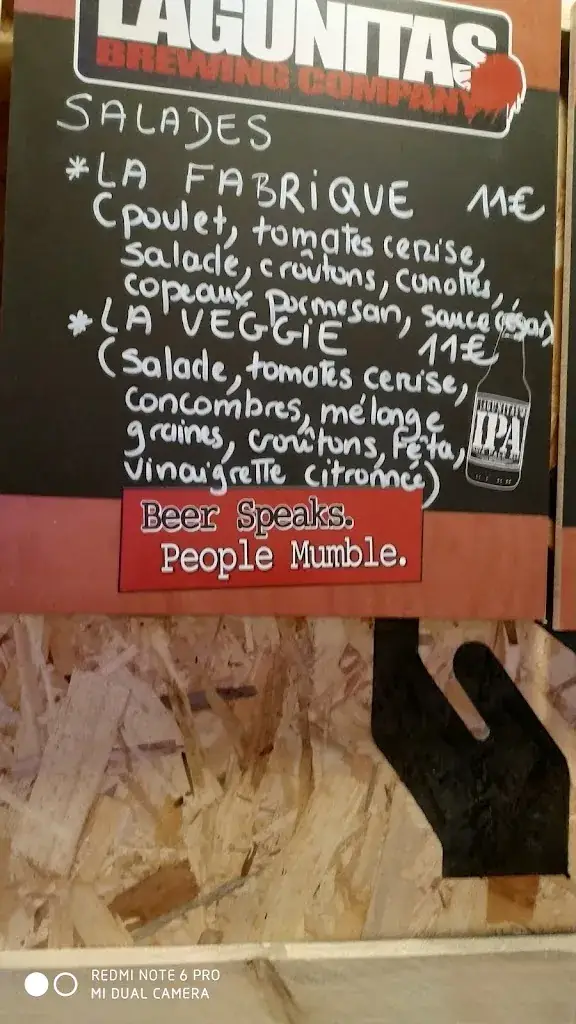 LAGUNITAS
BREWING COMPANY
SALADES
*LA FABRIQUE 11€
(poulet, tomates cerise,
salade, croûtons, carottes,
copeaux parmesan, sauce césar)
*LA VEGGIE 11€
(salade, tomates cerise,
concombres, mélange
graines, croûtons, fêta,
vinaigrette citronnée)
LAGUNITAS
IPA
Beer Speaks.
People Mumble.
REDMI NOTE 6 PRO
MI DUAL CAMERA